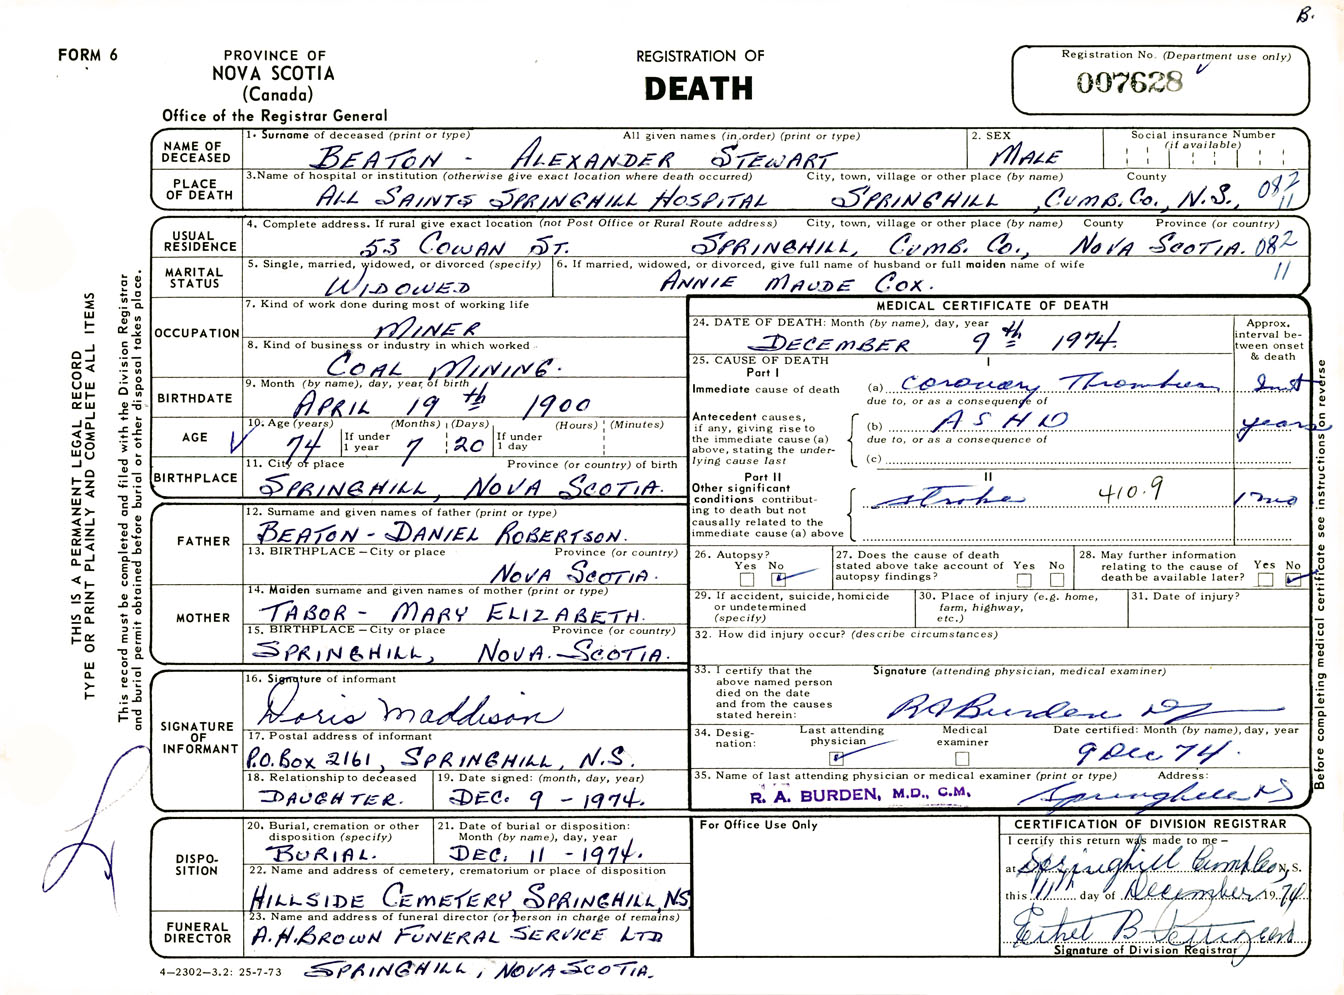 B.
FORM 6
PROVINCE OF
NOVA SCOTIA
(Canada)
Office of the Registrar General
REGISTRATION OF
DEATH
Registration No. (Department use only)
007628
THIS IS A PERMANENT LEGAL RECORD
TYPE OR PRINT PLAINLY AND COMPLETE ALL ITEMS
This record must be completed and filed with the Division Registrar
and burial permit obtained before burial or other disposal takes place.
NAME OF DECEASED
1. Surname of deceased (print or type) All given names (in order) (print or type)
BEATON - ALEXANDER STEWART
2. SEX
MALE
Social insurance Number
(if available)
PLACE OF DEATH
3. Name of hospital or institution (otherwise give exact location where death occurred) City, town, village or other place (by name) County
ALL SAINTS SPRINGHILL HOSPITAL SPRINGHILL, CUMB. CO., N.S., 082
11
USUAL RESIDENCE
4. Complete address. If rural give exact location (not Post Office or Rural Route address) City, town, village or other place (by name) County Province (or country)
53 COWAN ST. SPRINGHILL, CUMB. CO., NOVA SCOTIA. 082
11
MARITAL STATUS
5. Single, married, widowed, or divorced (specify)
WIDOWED
6. If married, widowed, or divorced, give full name of husband or full maiden name of wife
ANNIE MAUDE COX.
OCCUPATION
7. Kind of work done during most of working life
MINER
8. Kind of business or industry in which worked
COAL MINING.
BIRTHDATE
9. Month (by name), day, year of birth
APRIL 19th 1900
AGE
10. Age (years) (Months) (Days) (Hours) (Minutes)
74 If under 1 year 7 20 If under 1 day
BIRTHPLACE
11. City or place Province (or country) of birth
SPRINGHILL, NOVA SCOTIA.
FATHER
12. Surname and given names of father (print or type)
BEATON - DANIEL ROBERTSON.
13. BIRTHPLACE – City or place Province (or country)
NOVA SCOTIA.
MOTHER
14. Maiden surname and given names of mother (print or type)
TABOR - MARY ELIZABETH.
15. BIRTHPLACE – City or place Province (or country)
SPRINGHILL, NOVA SCOTIA.
SIGNATURE OF INFORMANT
16. Signature of informant
Doris Maddison
17. Postal address of informant
P.O. BOX 2161, SPRINGHILL, N.S.
18. Relationship to deceased
DAUGHTER.
19. Date signed: (month, day, year)
DEC. 9 - 1974.
DISPOSITION
20. Burial, cremation or other disposition (specify)
BURIAL.
21. Date of burial or disposition: Month (by name), day, year
DEC. 11 - 1974.
22. Name and address of cemetery, crematorium or place of disposition
HILLSIDE CEMETERY SPRINGHILL, NS
FUNERAL DIRECTOR
23. Name and address of funeral director (or person in charge of remains)
A.H. BROWN FUNERAL SERVICE LTD
SPRINGHILL, NOVA SCOTIA.
4–2302–3.2: 25-7-73
MEDICAL CERTIFICATE OF DEATH
24. DATE OF DEATH: Month (by name), day, year
DECEMBER 9th 1974.
Approx. interval between onset & death
25. CAUSE OF DEATH
Part I I
Immediate cause of death (a) Coronary Thrombosis Inst
due to, or as a consequence of
Antecedent causes, if any, giving rise to the immediate cause (a) above, stating the underlying cause last
(b) A S H D years
due to, or as a consequence of
(c)
Part II II
Other significant conditions contributing to death but not causally related to the immediate cause (a) above
stroke 410.9 1 mo
26. Autopsy?
Yes No
27. Does the cause of death stated above take account of autopsy findings?
Yes No
28. May further information relating to the cause of death be available later?
Yes No
29. If accident, suicide, homicide or undetermined (specify)
30. Place of injury (e.g. home, farm, highway, etc.)
31. Date of injury?
32. How did injury occur? (describe circumstances)
33. I certify that the above named person died on the date and from the causes stated herein:
Signature (attending physician, medical examiner)
RA Burden
34. Designation:
Last attending physician
Medical examiner
Date certified: Month (by name), day, year
9 Dec 74.
35. Name of last attending physician or medical examiner (print or type) Address:
R. A. BURDEN, M.D., C.M. Springhill NS
Before completing medical certificate see instructions on reverse
For Office Use Only
CERTIFICATION OF DIVISION REGISTRAR
I certify this return was made to me –
at Springhill Cumb Co, N.S.
this 11th day of December 1974
Ethel B Pettigrew
Signature of Division Registrar